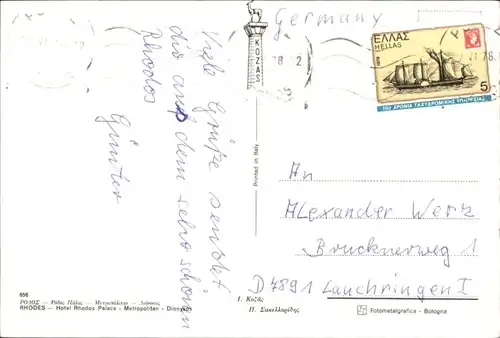 Viele Grüße sendet
dir auf dem sehr schönen
Rhodos
Günter
Germany
KOZAS
ΕΛΛΑΣ
HELLAS
5
150 ΧΡΟΝΙΑ ΤΑΧΥΔΡΟΜΙΚΗΣ ΥΠΗΡΕΣΙΑΣ
Printed in Italy
An
Alexander Werz
Brucknerweg 1
D 7891 Lauchringen I
656
ΡΟΔΟΣ — Ρόδος Πάλας — Μετροπόλιταν — Διόνυσος
RHODES — Hotel Rhodos Palace - Metropolitan - Dionysos
Ι. Κοζᾶς
Π. Σακελλαρίδης
Fotometalgrafica - Bologna